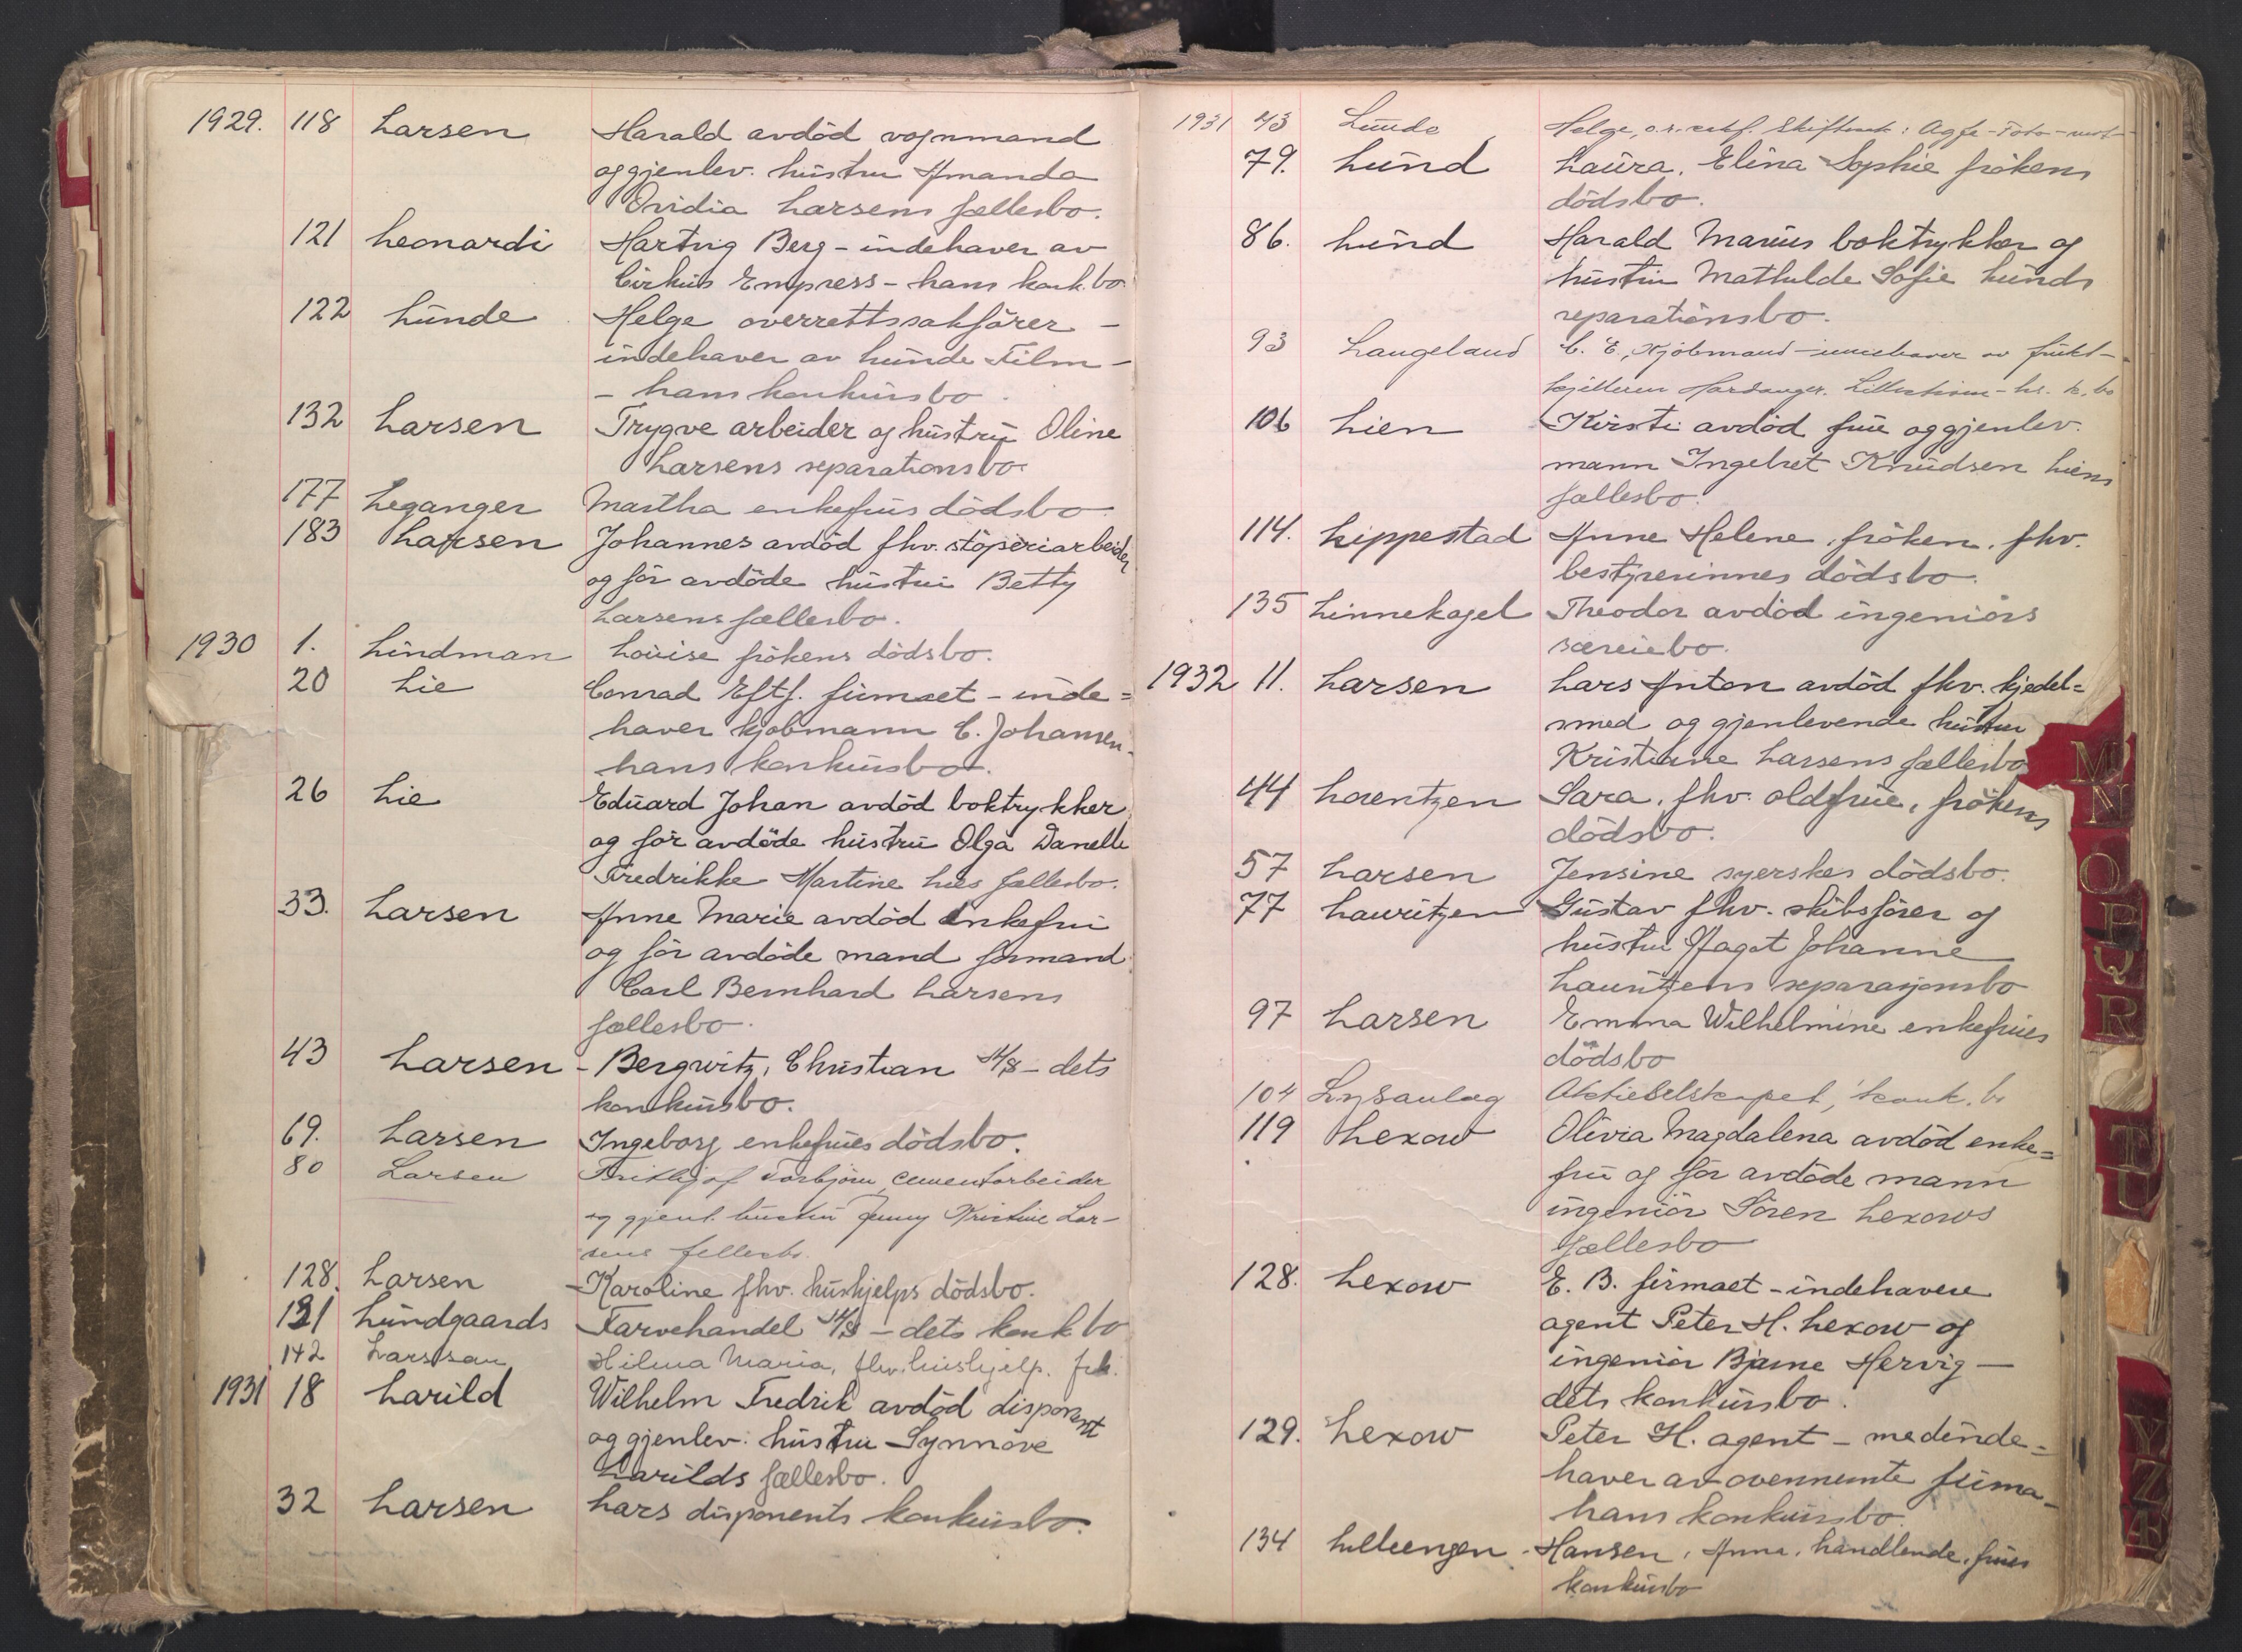 1929. 118 Larsen Harald avdød vognmand
og gjenlev. hustru Amanda
Ovidia Larsens fællesbo.
121 Leonardi Hartvig Berg - indehaver av
Cirkus Empress - hans konk.bo
122 Lunde Helge overrettssakfører -
indehaver av Lunde Film -
- hans konkursbo.
132 Larsen Trygve arbeider og hustru Oline
Larsens separationsbo
177 Leganger Martha enkefrus dödsbo
183 Larsen Johannes avdöd fhv. stöperiarbeider
og för avdöde hustru Betty
Larsens fællesbo.
1930 1. Lindman Louise frökens dödsbo.
20 Lie Conrad Eftf. firmaet - inde=
haver kjøbmann C. Johansen -
hans konkursbo.
26 Lie Eduard Johan avdöd boktrykker
og för avdöde hustru Olga Danelle
Fredrikke Martine Lies fællesbo.
33. Larsen Anne Marie avdöd enkefru
og för avdöde mand formand
Carl Bernhard Larsens
fællesbo.
43 Larsen - Bergwitz, Christian A/S - dets
konkursbo.
69. Larsen Ingeborg enkefrues dödsbo.
80 Larsen Frithjof Torbjörn, cementarbeider
og gjenl. hustru Jenny Kristine Lar-
sens fellesbo.
128. Larsen Karoline fhv. hushjelps dödsbo.
131 Lundgaards Farvehandel A/S - dets konk bo
142 Larsson Hilma Maria, fhv. hushjelp. frk.
1931 18 Larild Wilhelm Fredrik avdöd disponent
og gjenlev. hustru Synnöve
Larilds fællesbo.
32 Larsen Lars disponents konkursbo.
1931 43 Lunde Helge, o.r.sakf. Skiftesak: Agfa-Foto-mot
79. Lund Laura, Elina Sophie frökens
dödsbo.
86. Lund Harald Marius boktrykker og
hustru Mathulde Sofie Lunds
separationsbo.
93 Langeland C. E., Kjöbmand - innehaver av frukt-
kjelleren Hardanger. Lilleström - hs. k. bo
106 Lien Kirsti avdöd frue og gjenlev.
mann Ingebret Knudsen Liens
fællesbo.
114. Lippestad Anne Helene, fröken, fhv.
bestyrerinnes dödsbo.
135 Linnekogel Theodor avdöd ingeniörs
særeiebo.
1932 11. Larsen Lars Anton avdöd fhv. kjedel=
smed og gjenlevende hustru
Kristiane Larsens fællesbo
44 Lorentzen Sara, fhv. oldfrue, frökens
dödsbo.
57 Larsen Jensine syerskes dödsbo.
77 Lauritzen Gustav fhv. skibsförer og
hustru Hagat Johanne
Lauritzens separasjonsbo
97 Larsen Emma Wilhelmine enkefrues
dödsbo
104 Lysanlæg Aktieselskapet, konk. bo
119 Lexow Olivia Magdalena avdöd enke=
fru og för avdöde mann
ingeniör Sören Lexows
fællesbo
128. Lexow E. B. firmaet - indehavere
agent Peter H. Lexow og
ingeniör Bjarne Hervig -
dets konkursbo.
129. Lexow Peter H. agent - medinde-
haver av ovennemte firma -
hans konkursbo.
134 Lilleengen - Hansen, Anna, handlende, frues
konkursbo
M
N
O
P
Q
R
T
U
Y
Z
Æ